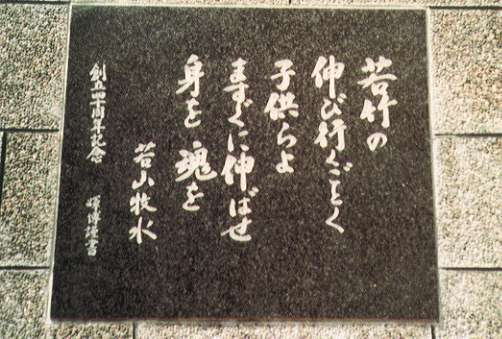 若竹の
伸び行くごとく
子供らよ
ますぐに伸ばせ
身を魂を
若山牧水
創立四十周年記念